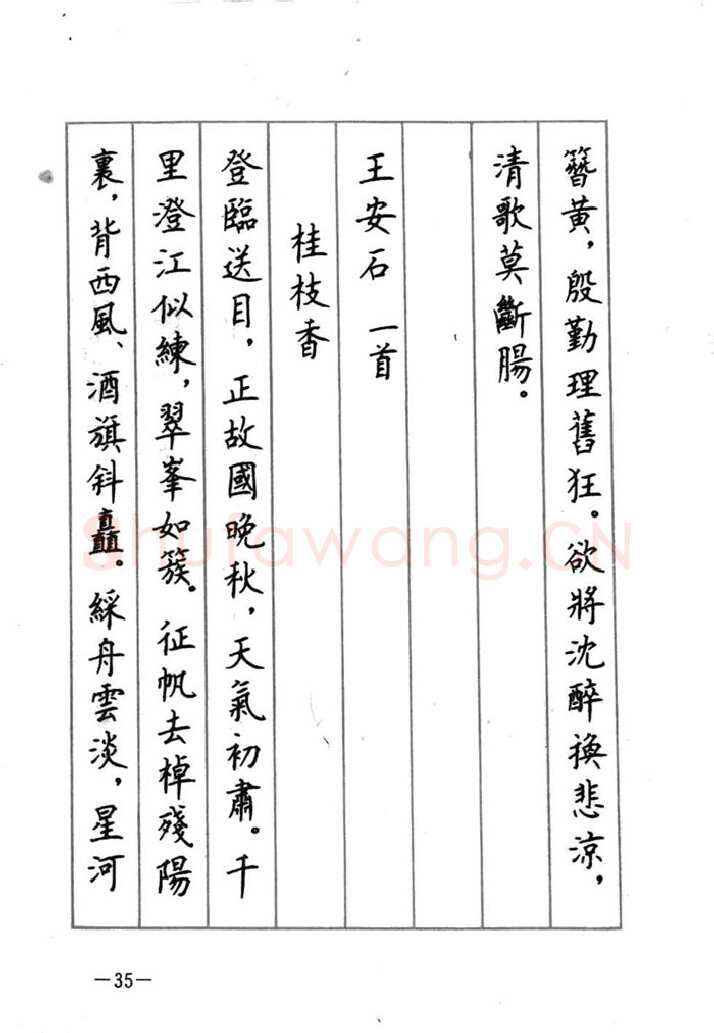 簪黄，殷勤理舊狂。欲將沈醉換悲涼，
清歌莫斷腸。
王安石 一首
桂枝香
登臨送目，正故國晚秋，天氣初肅。千
里澄江似練，翠峯如簇。征帆去棹殘陽
裏，背西風、酒旗斜矗。綵舟雲淡，星河
—35—
Shufawang.CN